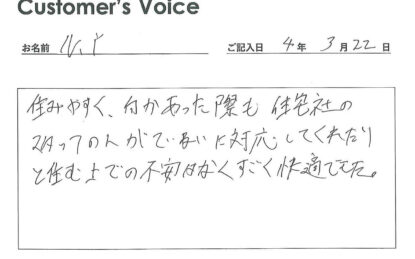 Customer's Voice
お名前 N.Y ご記入日 4年 3月22日
住みやすく、何かあった際も 住宅社の
スタッフの人がていねいに対応してくれたり
と住む上での不安はなくすごく快適でした。